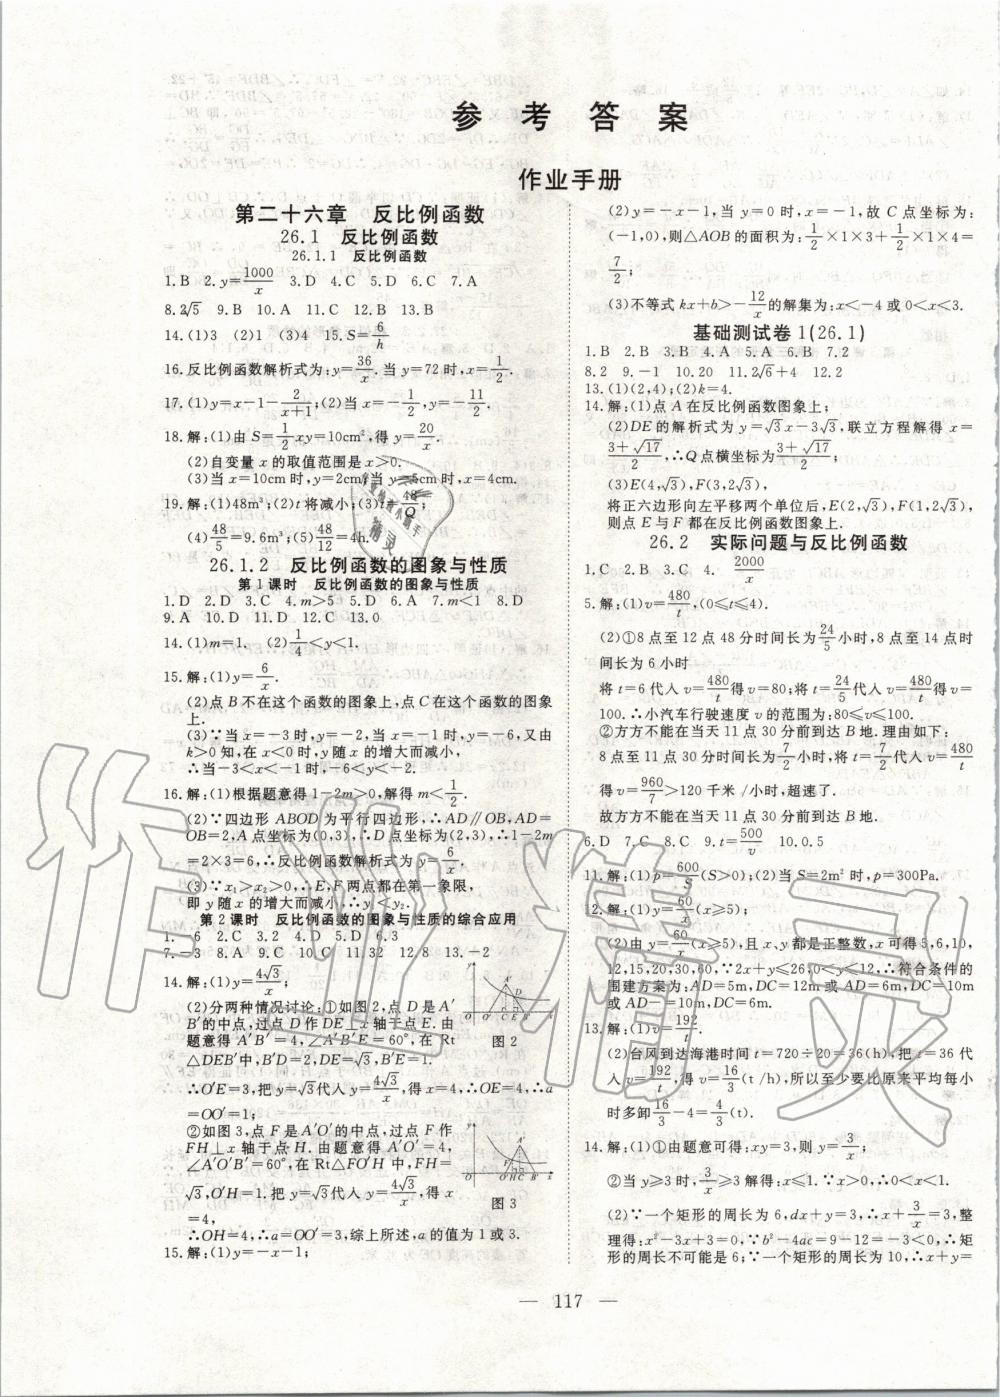 参考答案
作业手册
第二十六章 反比例函数
26.1 反比例函数
26.1.1 反比例函数
1.B 2.y=1000/x 3.D 4.D 5.C 6.C 7.A
8.2√5 9.B 10.A 11.C 12.B 13.B
14.(1)3 (2)1 (3)4 15.S=6/h
16.反比例函数解析式为:y=36/x.当y=72时,x=1/2.
17.(1)y=x-1-2/(x+1);(2)当x=-1/2,y=-11/2.
18.解:(1)由S=1/2xy=10cm²,得y=20/x.
(2)自变量x的取值范围是x>0.
(3)当x=10cm时,y=2cm当y=5cm时,x=4cm.
19.解:(1)48m³;(2)t将减小;(3)t=48/Q;
(4)48/5=9.6m³;(5)48/12=4h.
26.1.2 反比例函数的图象与性质
第1课时 反比例函数的图象与性质
1.D 2.D 3.C 4.m>5 5.D 6.A 7.m<1 8.D
9.A 10.D 11.D 12.C 13.0
14.(1)m=1. (2)1/4<y<1.
15.解:(1)y=6/x.
(2)点B不在这个函数的图象上,点C在这个函数的图象
上.
(3)∵当x=-3时,y=-2,当x=-1时,y=-6,又由
k>0知,在x<0时,y随x的增大而减小,
∴当-3<x<-1时,-6<y<-2.
16.解:(1)根据题意得1-2m>0,解得m<1/2.
(2)∵四边形ABOD为平行四边形,∴AD∥OB,AD=
OB=2,A点坐标为(0,3),∴D点坐标为(2,3),∴1-2m
=2×3=6,∴反比例函数解析式为y=6/x.
(3)∵x₁>x₂>0,∴E,F两点都在第一象限,
即y随x的增大而减小,∴y₁<y₂.
第2课时 反比例函数的图象与性质的综合应用
1.-6 2.C 3.2 4.D 5.D 6.3
7.-3 8.A 9.C 10.C 11.32 12.8 13.-2
14.解:(1)y=4√3/x;
(2)分两种情况讨论:①如图2,点D是A′
B′的中点,过点D作DE⊥x轴于点E.由
题意得A′B′=4,∠A′B′E=60°,在Rt
△DEB′中,B′D=2,DE=√3,B′E=1.
∴O′E=3,把y=√3代入y=4√3/x,得x=4,∴OE=4,∴a
=OO′=1;
②如图3,点F是A′O′的中点,过点F作
FH⊥x轴于点H.由题意得A′O′=4,
∠A′O′B′=60°,在Rt△FO′H中,FH=
√3,O′H=1.把y=√3代入y=4√3/x,得x
=4,
∴OH=4,∴a=OO′=3,综上所述,a的值为1或3.
图2
图3
15.解:(1)y=-x-1;
(2)y=-x-1,当y=0时,x=-1,故C点坐标为:
(-1,0),则△AOB的面积为:1/2×1×3+1/2×1×4=
7/2;
(3)不等式kx+b>-12/x的解集为:x<-4或0<x<3.
基础测试卷1(26.1)
1.B 2.B 3.B 4.A 5.A 6.B 7.2
8.2 9.-1 10.20 11.2√6+4 12.2
13.(1)(2,4);(2)k=4.
14.解:(1)点A在反比例函数图象上;
(2)DE的解析式为y=√3x-3√3,联立方程解得x=
(3+√17)/2,∴Q点横坐标为(3+√17)/2;
(3)E(4,√3),F(3,2√3),
将正六边形向左平移两个单位后,E(2,√3),F(1,2√3),
则点E与F都在反比例函数图象上.
26.2 实际问题与反比例函数
1.C 2.B 3.C 4.2000/x
5.解:(1)v=480/t,(0≤t≤4).
(2)①8点至12点48分时间长为24/5小时,8点至14点时
间长为6小时
将t=6代入v=480/t得v=80;将t=24/5代入v=480/t得v=
100.∴小汽车行驶速度v的范围为:80≤v≤100.
②方方不能在当天11点30分前到达B地.理由如下:
8点至11点30分时间长为7/2小时,将t=7/2代入v=480/t
得v=960/7>120千米/小时,超速了.
故方方不能在当天11点30分前到达B地.
6.D 7.C 8.C 9.t=500/v 10.0.5
11.解:(1)p=600/S(S>0);(2)当S=2m²时,p=300Pa.
12.解:(1)y=60/x(x≥5);
(2)由y=60/x(x≥5),且x、y都是正整数,x可得5,6,10,
12,15,20,30,60,∵2x+y≤26,0<y≤12,∴符合条件的
围建方案为:AD=5m,DC=12m或AD=6m,DC=10m
或AD=10m,DC=6m.
13.解:(1)v=192/t.
(2)台风到达海港时间t=720÷20=36(h),把t=36代
入v=192/t,得v=16/3(t/h),所以至少要比原来平均每小
时多卸16/3-4=4/3(t).
14.解:(1)①由题意可得:xy=3,则y=3/x;
②当y≥3时,3/x≥3解得:x≤1.∴x的取值范围是0<x≤1.
(2)∵一个矩形的周长为6,∴x+y=3,∴x+3/x=3,整
理得:x²-3x+3=0,∵b²-4ac=9-12=-3<0,∴矩形
的周长不可能是6;∵一个矩形的周长为10,∴x+y=
— 117 —
作业精灵